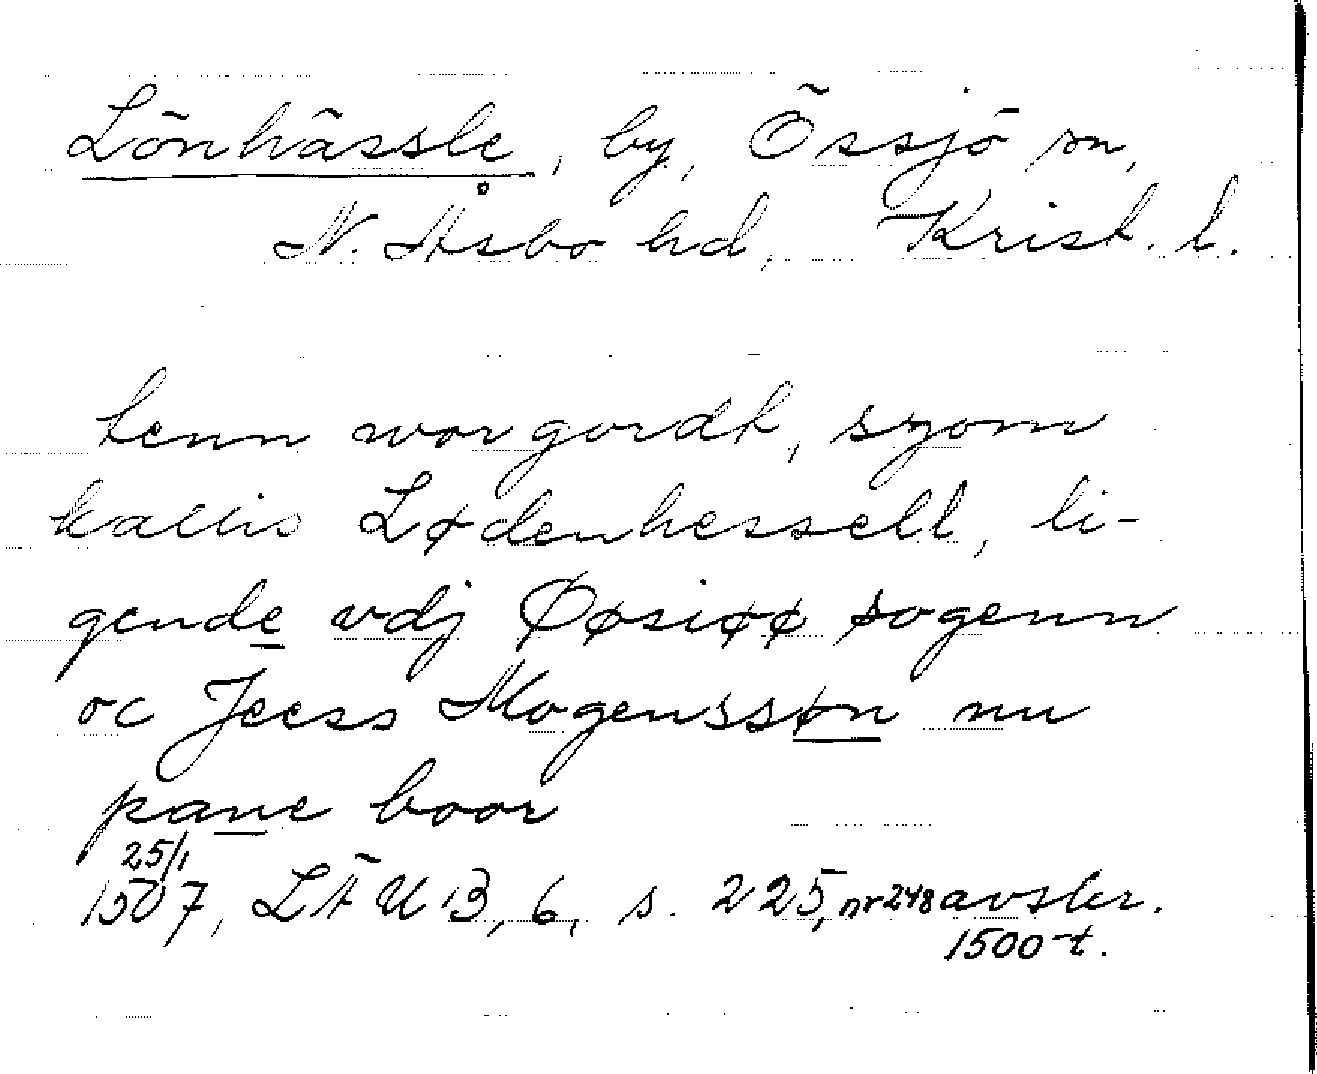 Lönhässle, by, Össjö sn,
N. Åsbo hd, Krist. l.
tenn wor gordt, szom
kallis Lødenhessell, li-
gende vdj Øøsiøø sogenn
oc Jeess Mogenssøn nu
pane boor
25/1
1507, LÄU 13, 6, s. 225, nr 248 avskr.
1500-t.